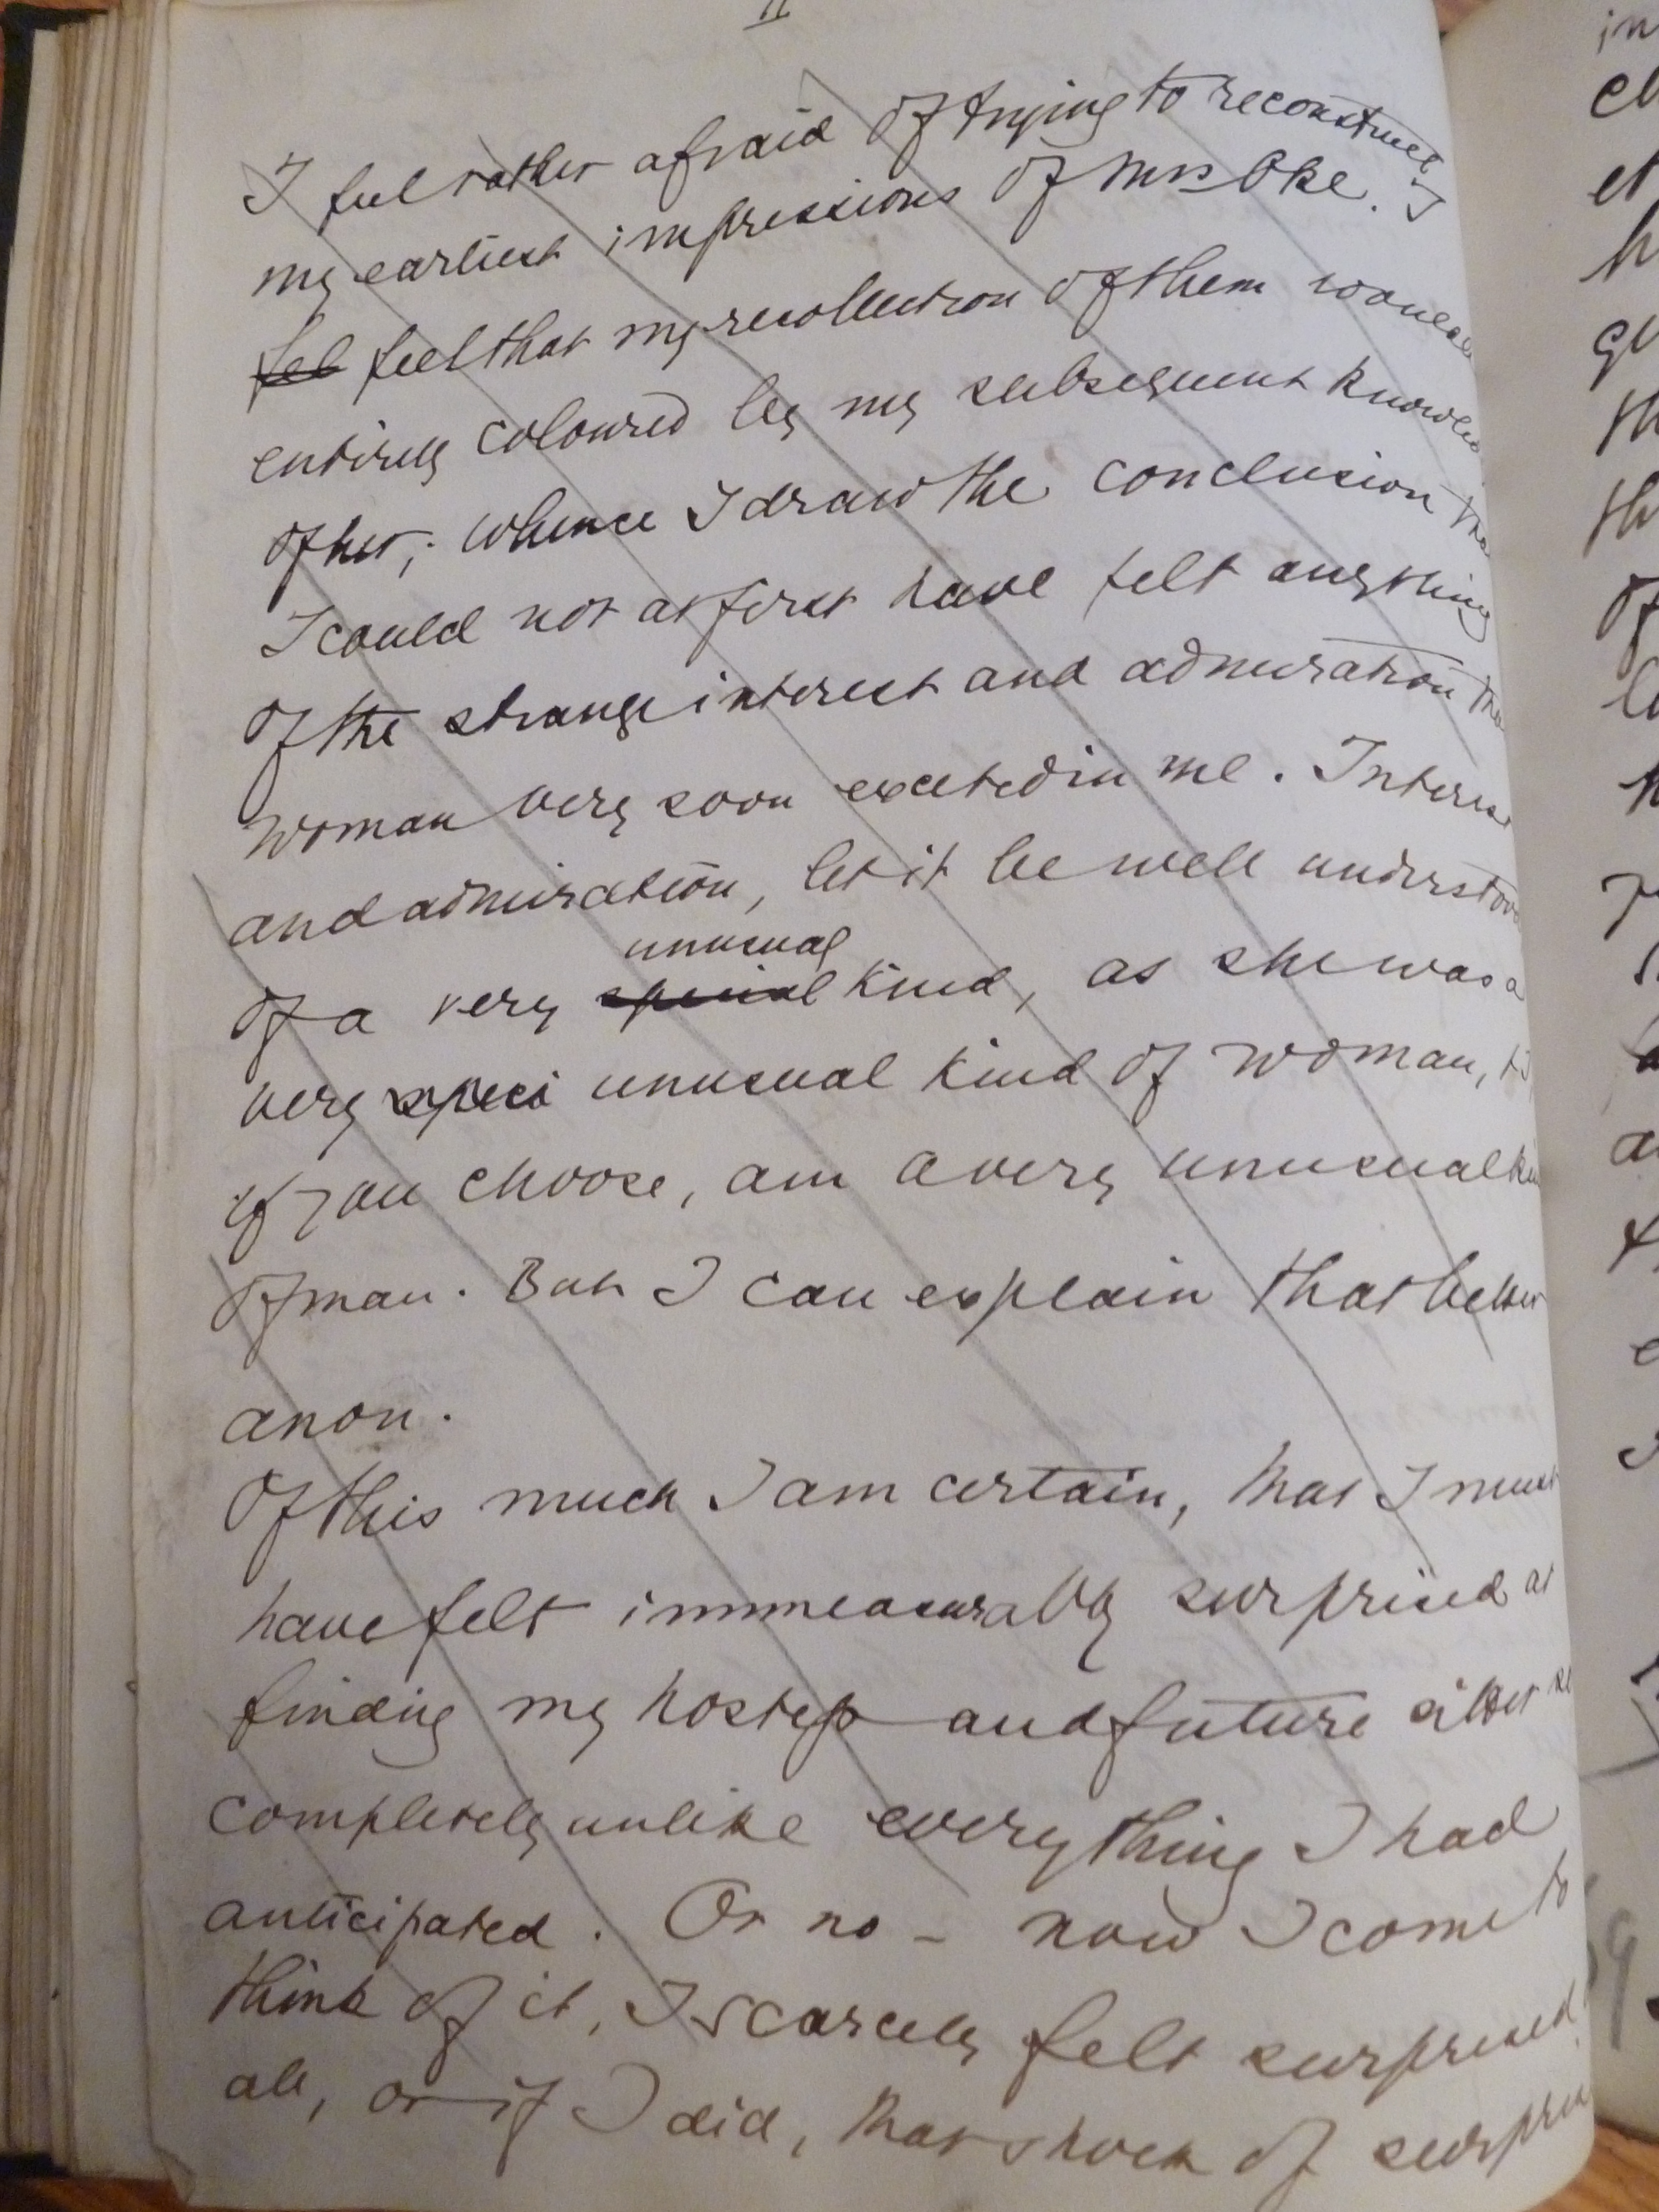 II
I feel rather afraid of trying to reconstruct
my earliest impressions of Mrs Oke. I
fel feel that my recollection of them would
entirely coloured by my subsequent knowled
of her; whence I draw the conclusion tha
I could not at first have felt anything
of the strange interest and admiration tha
woman very soon excited in me. Interest
and admiration, let it be well understood
unusual
of a very special kind, as she was a
very speci unusual kind of woman, & I
if you choose, am a very unusual kin
of man. But I can explain that better
anon.
Of this much I am certain, that I must
have felt immeasurably surprised at
finding my hostess and future sitter so
completely unlike everything I had
anticipated. Or no - now I come to
think of it, I scarcely felt surprised
all, or if I did, that shock of surpris